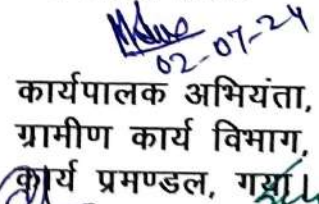 02-07-24
कार्यपालक अभियंता,
ग्रामीण कार्य विभाग,
कार्य प्रमण्डल, गया।